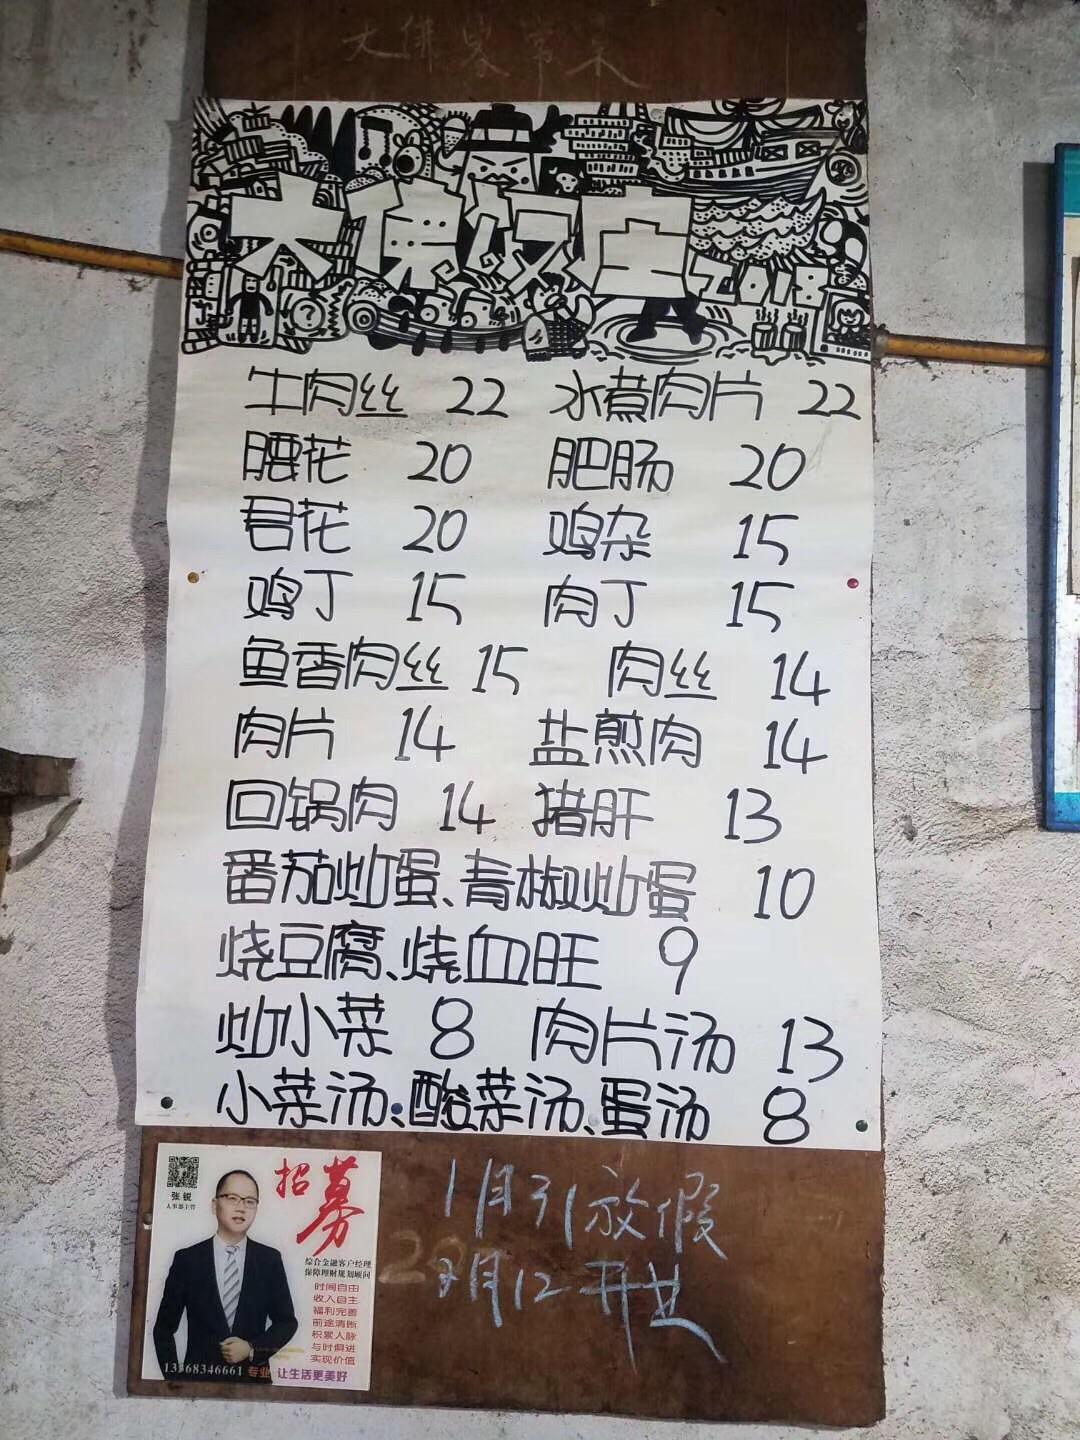 大佛家常菜
大佛饭店2018
牛肉丝 22 水煮肉片 22
腰花 20 肥肠 20
君花 20 鸡杂 15
鸡丁 15 肉丁 15
鱼香肉丝 15 肉丝 14
肉片 14 盐煎肉 14
回锅肉 14 猪肝 13
番茄炒蛋、青椒炒蛋 10
烧豆腐、烧血旺 9
炒小菜 8 肉片汤 13
小菜汤、酸菜汤、蛋汤 8
招募
张锐
人事部主管
综合金融客户经理
保障理财规划顾问
时间自由
收入自主
福利完善
前途清晰
积累人脉
与时俱进
实现价值
13368346661 专业 让生活更美好
1月31放假
2月12开业